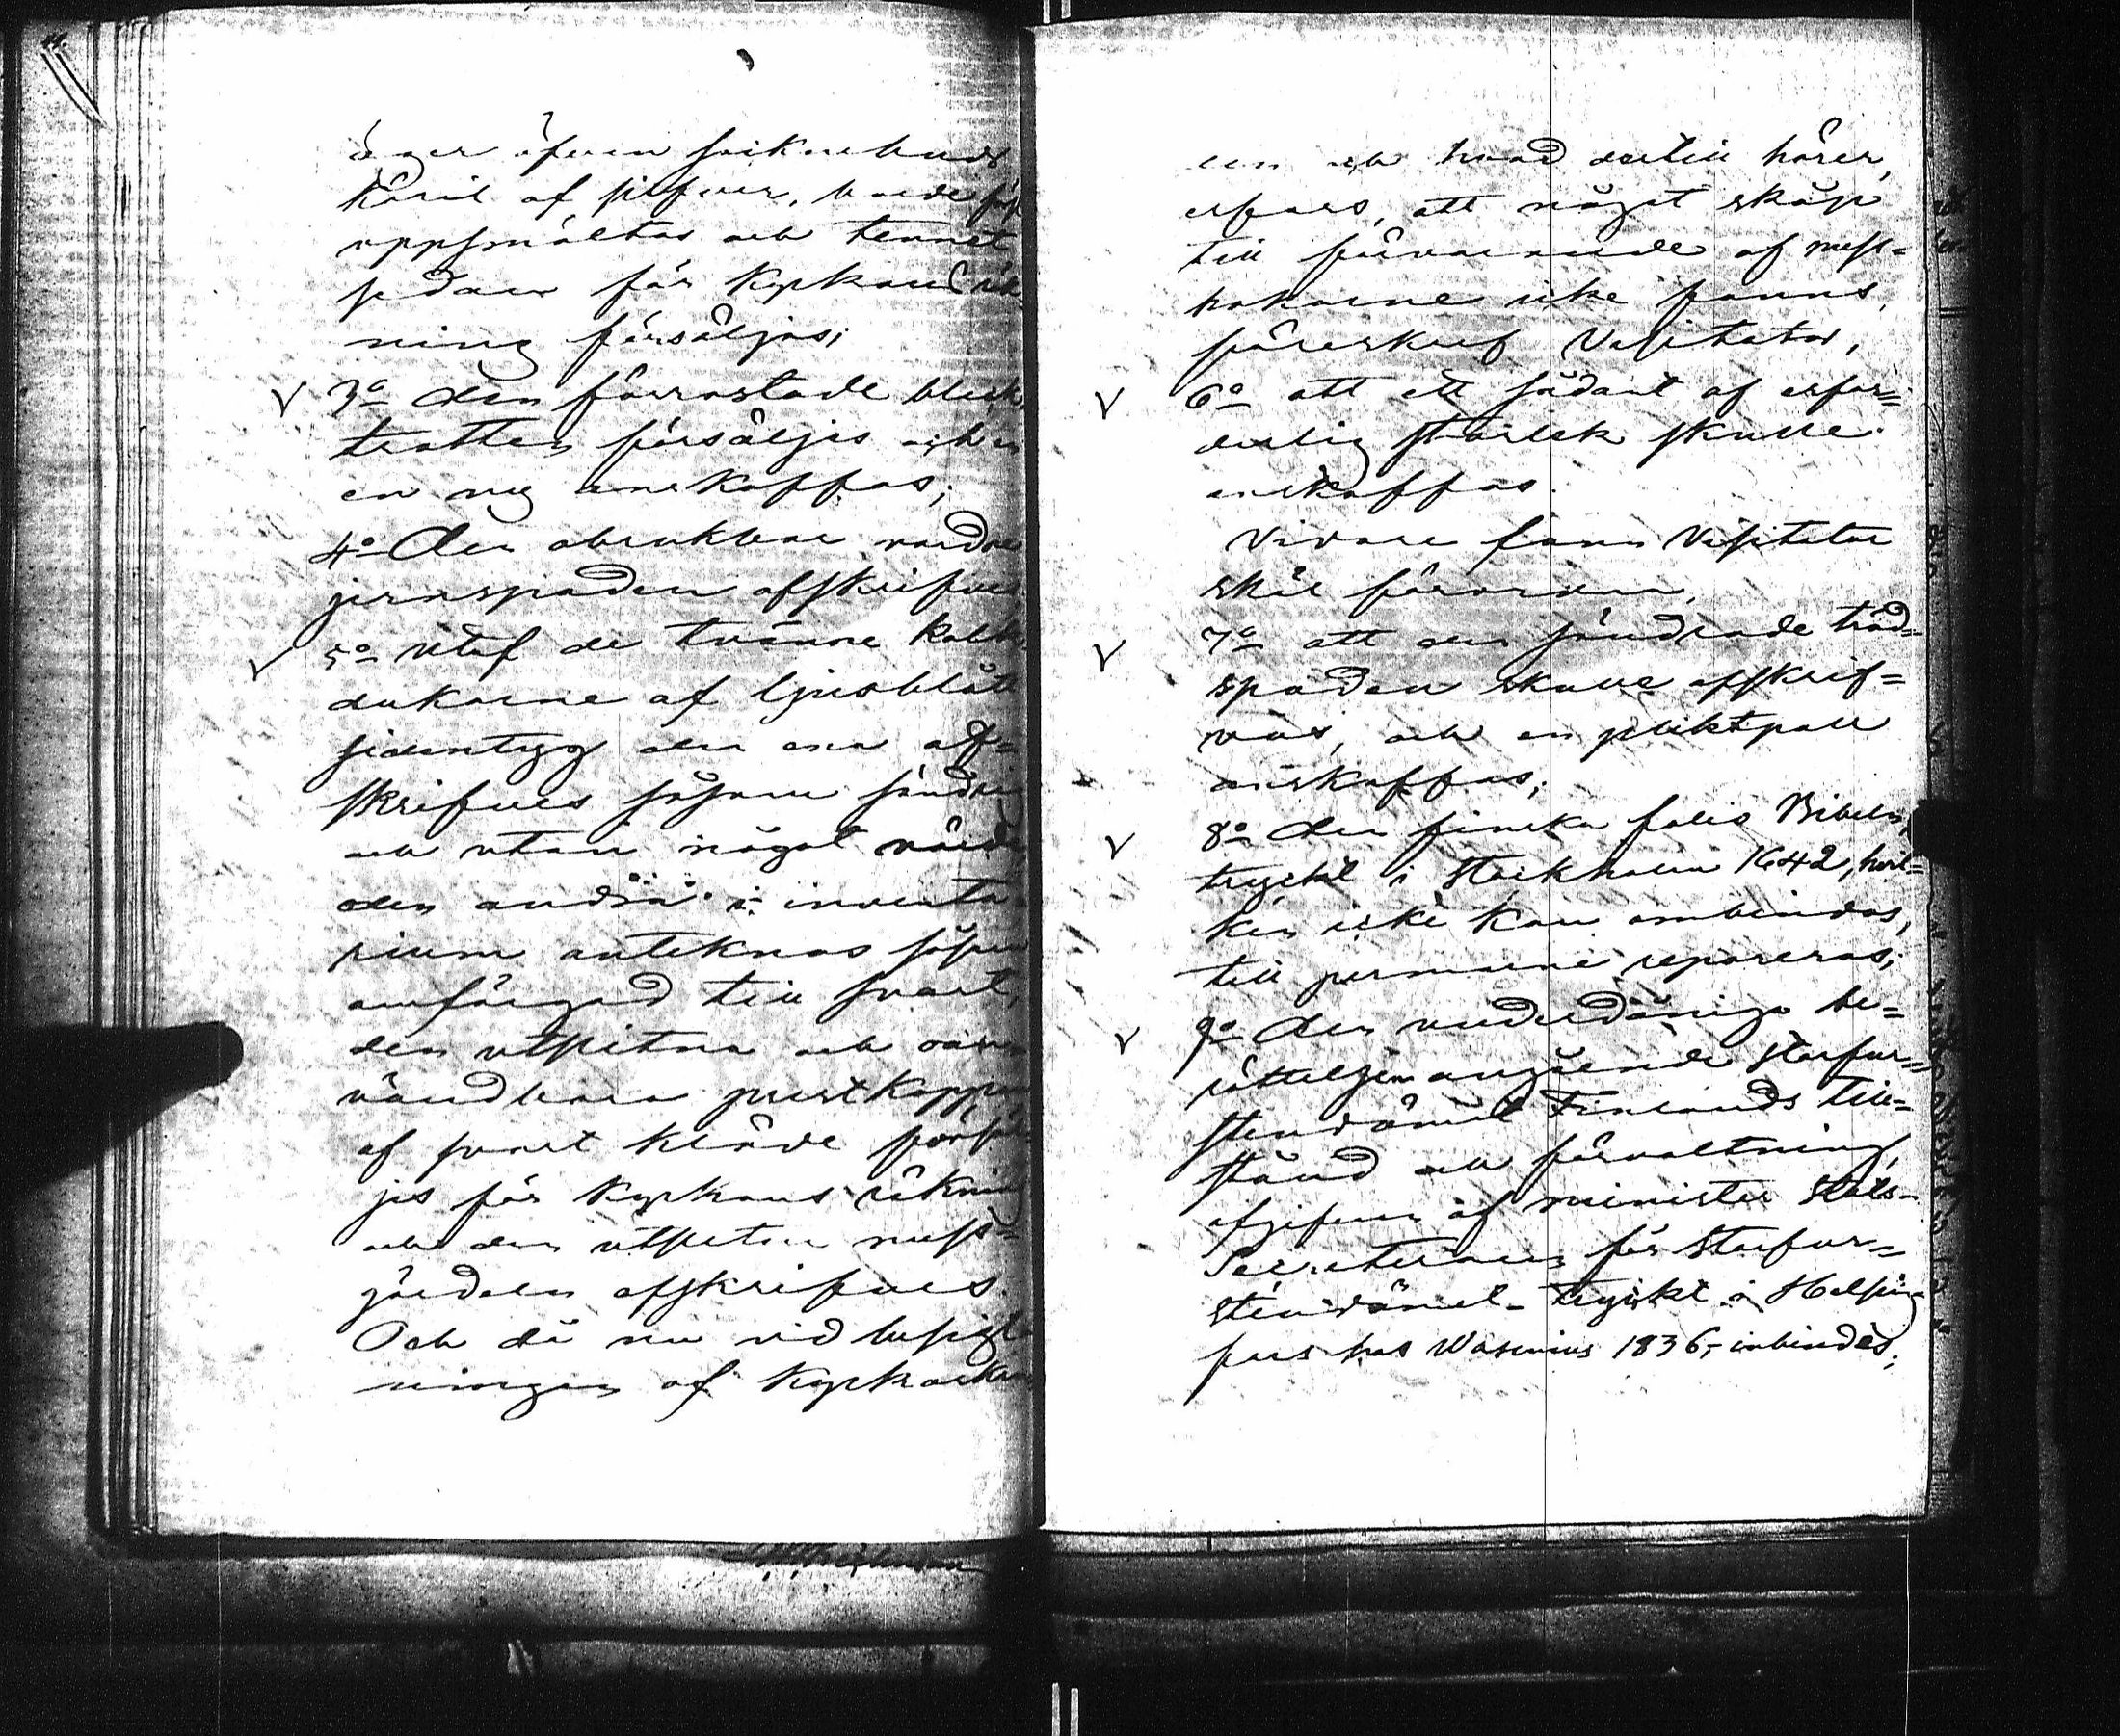 äger äfven sockenbuds
käril af silfver, borde
uppsmältas och tennet
sedan för Kyrkans räk
ning försäljas;
3o den förrostade bleck
tratten försäljes och
en ny anskaffas;
4o Den obrukbar vordne
jernspaden afskrifves
5o Utaf de tvänne kalk
dukarne af ljusblått
sidentyg den ena af=
skrifves såsom söndrig
och utan något värde
den andra i inventa
rium anteknas såsom
omfärgad till svart,
den utslitna och oan
vändbara prestkappan
af svart kläde försäl
jes för Kyrkans räkning
och den utslitna mess=
gördeln afskrifves.
Och då nu vid besigt
ningen af Kyrkan
och hvad dertill hörer,
erfors, att något skåp
till förvarande af mess=
hakarne icke fanns,
föreskref Visitator,
6o att ett sådant af erfor=
derlig storlek skulle
anskaffas.
Vidare fann Visitator
skäl förordna,
7o att den söndrade träd=
spaden skulle afskrif=
vas, och en pliktpall
anskaffas;
8o den finska folio Bibeln,
tryckt i Stockholm 1642, hvil=
ken icke kan ombindas,
till permarne repareras;
9o Den underdåniga be=
rättelsen angående Storfur=
stendömet Finlands till=
stånd och förvaltning,
afgifven af minister Stats=
Secreteraren för Storfur=
stendömet - tryckt i Helsing
fors hos Wasenius 1836, - inbindes;